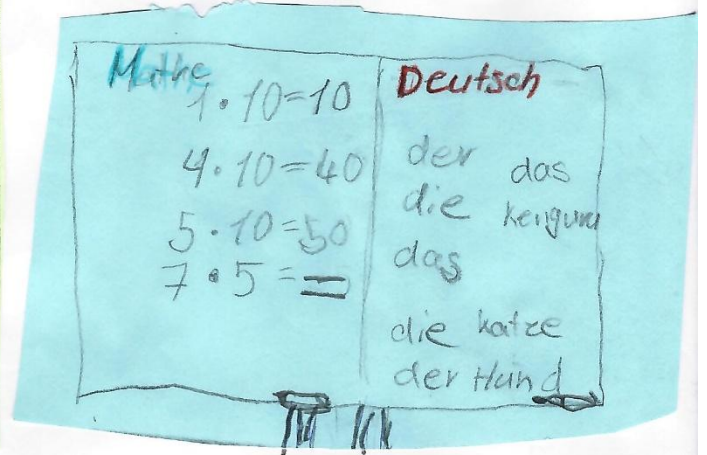 Mathe
1·10=10
4·10=40
5·10=50
7·5=
Deutsch
der
die
das
das
kenguru
die katze
der Hund